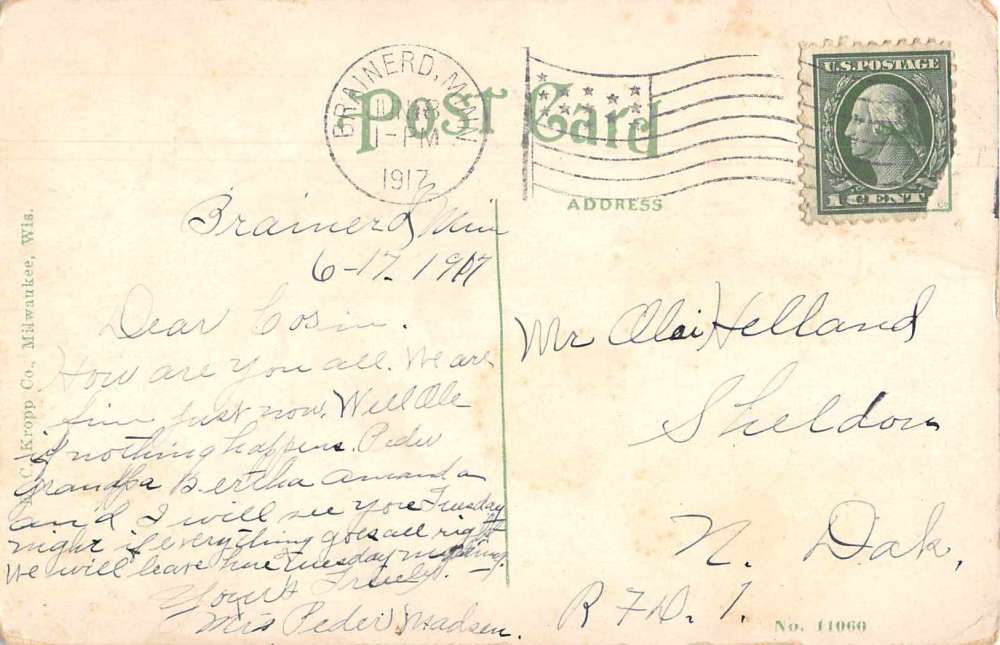 POST CARD
BRAINERD, MINN
1-PM
1917
U.S. POSTAGE
1 CENT
ADDRESS
C. Kropp Co., Milwaukee, Wis.
Brainerd, Min
6-17-1917
Dear Cosin.
How are you all. We are
fine just now. Well Ole
if nothing happens. Peder
Grandpa Bertha Amanda
and I will see you Tuesday
night if everything goes all right
We will leave here Tuesday morning.
Yours Truely.
Mrs Peder Madsen.
Mr Helland
Sheldon
N. Dak.
R F D. 1.
No. 11060